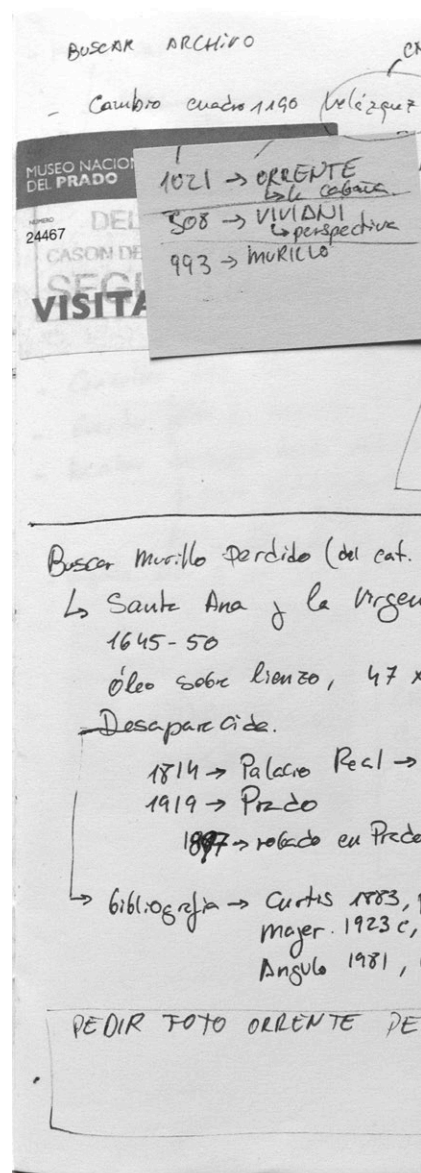 BUSCAR ARCHIVO
- Cambio cuadro 1190 Velázquez
MUSEO NACION
DEL PRADO
NÚMERO
24467
DEL
CASON DE
SEGU
VISITA
1021 → ORRENTE
↳ la cabaña.
508 → VIVIANI
↳ perspectiva
993 → MURILLO
Buscar Murillo Perdido (del cat.
↳ Santa Ana y la Virgen
1645-50
óleo sobre lienzo, 47 x
- Desaparecida.
1814 → Palacio Real →
1919 → Prado
1897 → robado en Prado
↳ bibliografía → Curtis 1883,
Mayer. 1923 c,
Angulo 1981,
PEDIR FOTO ORRENTE PE